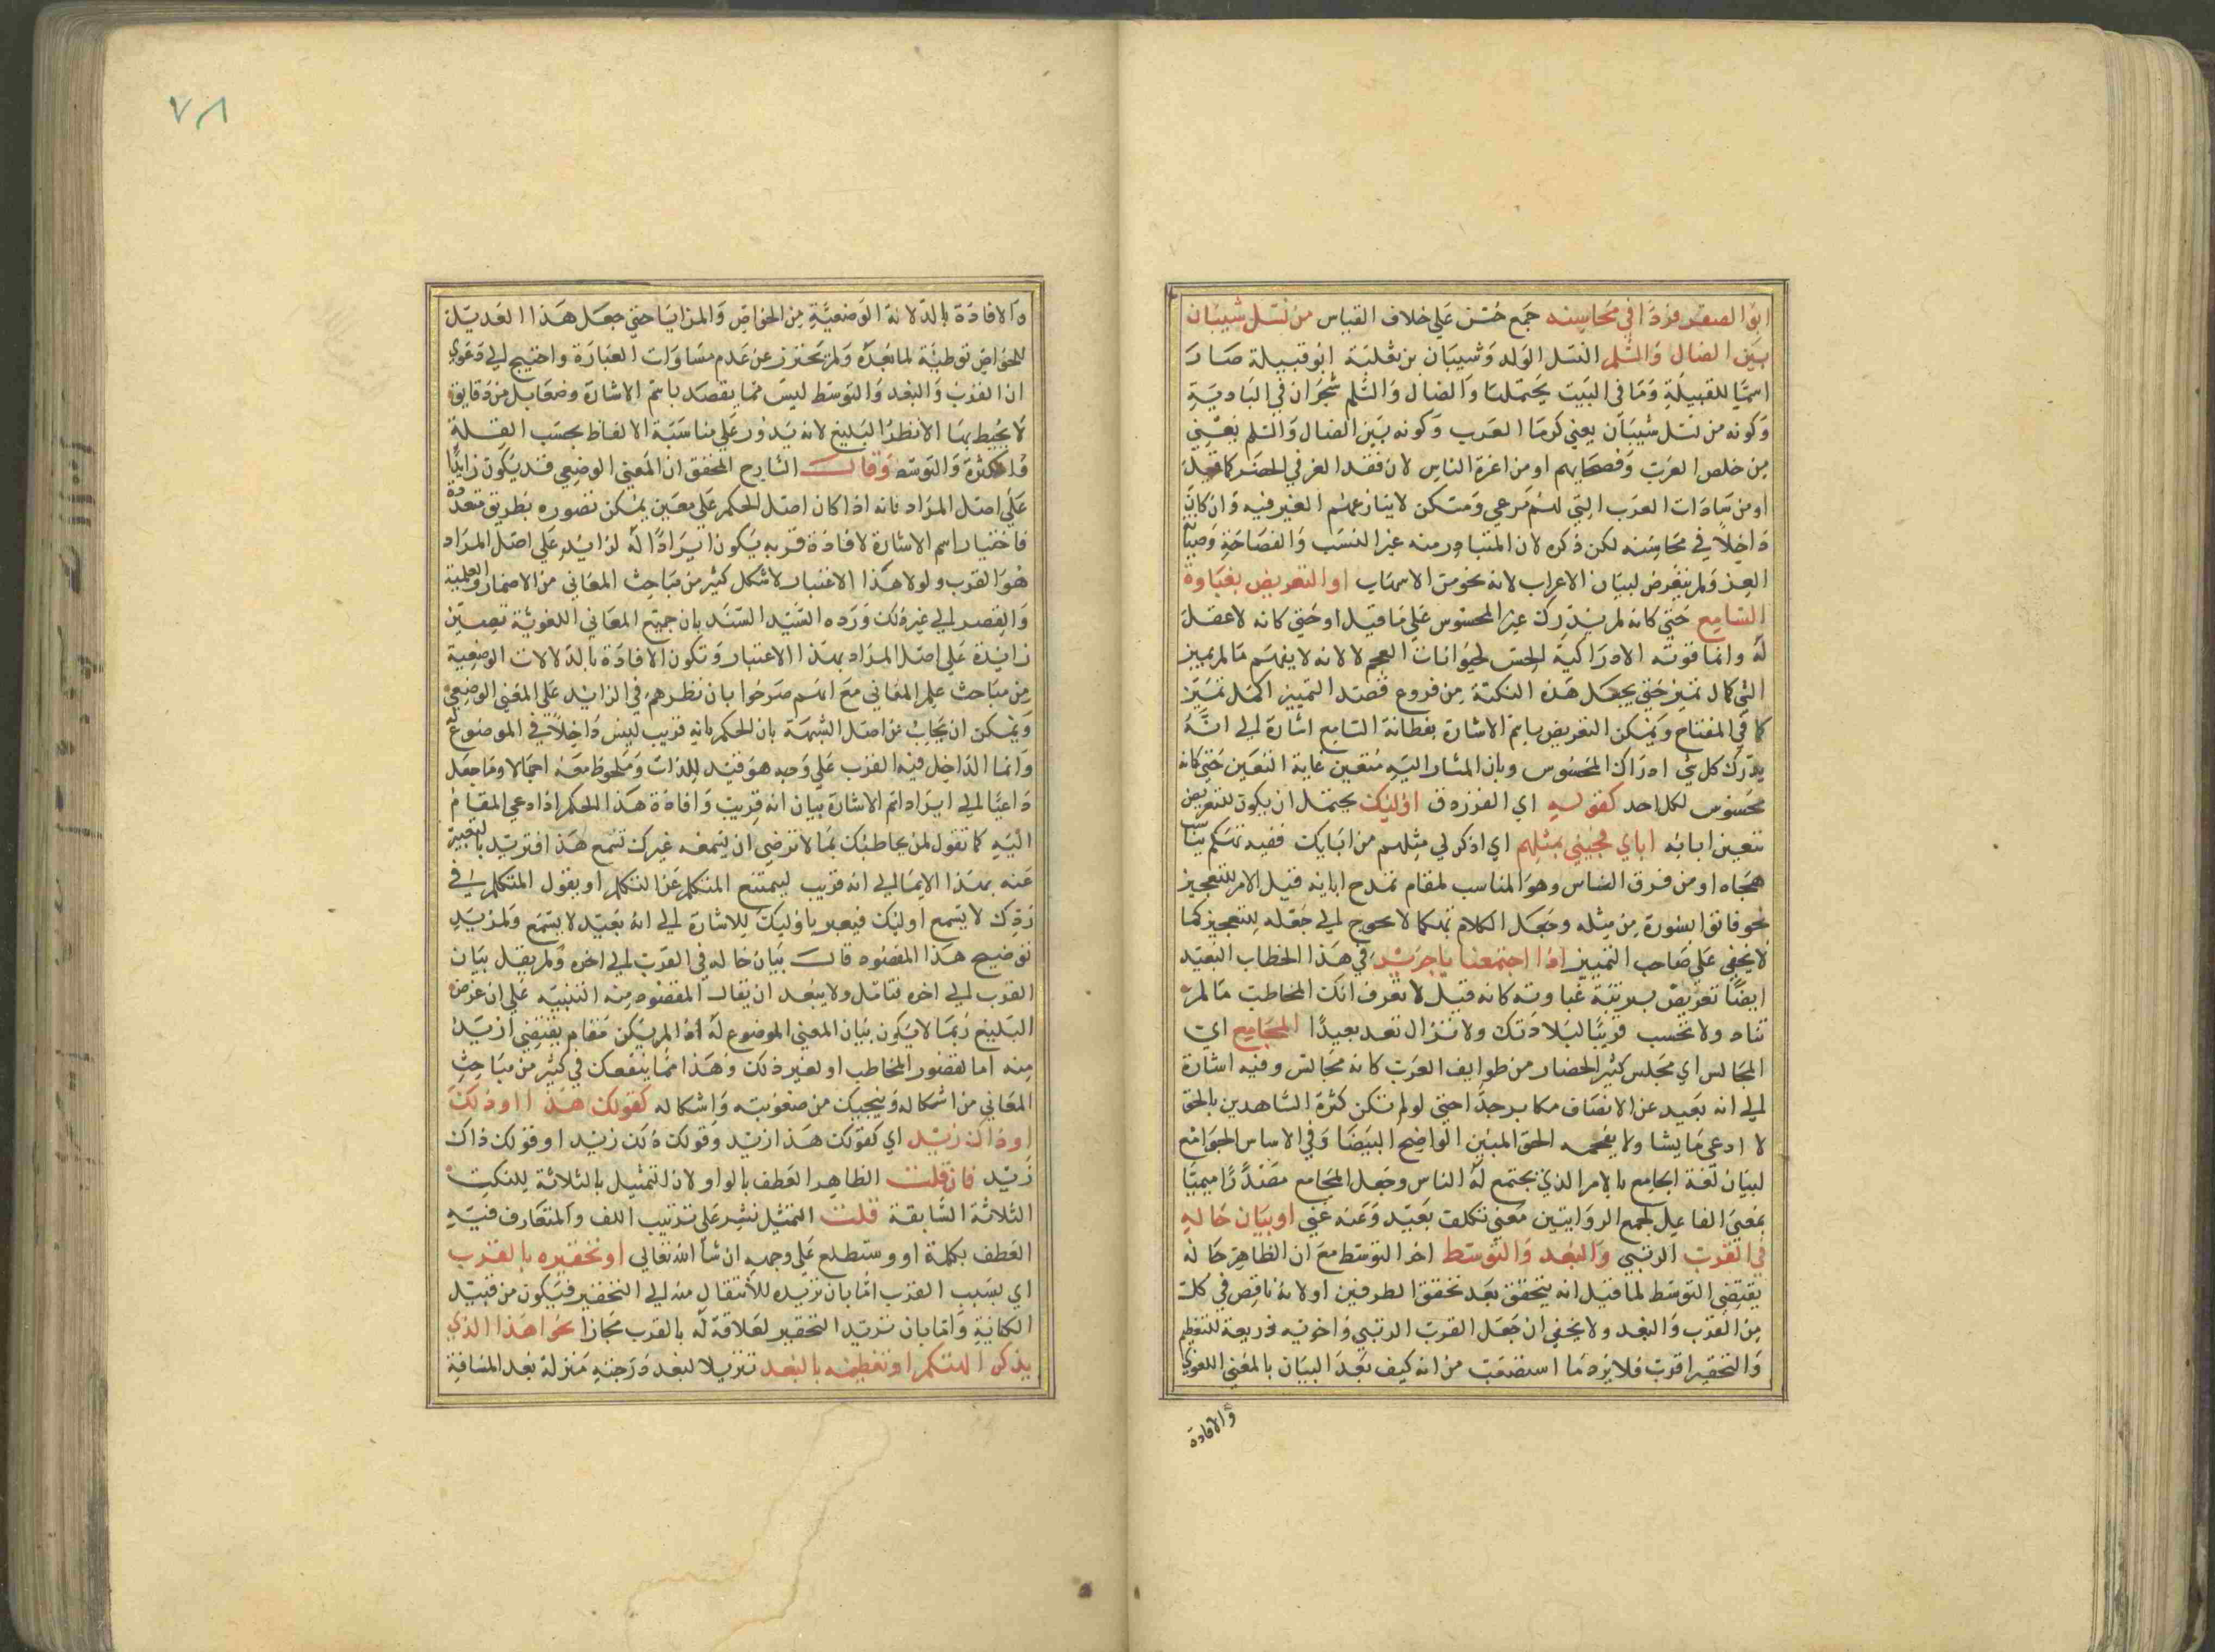 ابو الصقر فردا في محاسنه جمع حسن علي خلاف القياس من نسل شيبان
بين الضال والسلم النسل الولد وشيبان بن ثعلبة ابو قبيلة صار
اسما للقبيلة وما في البيت يحتملها والضال والسلم شجران في البادية
وكونه من نسل شيبان يعني كرما العرب وكونه بين الضال والسلم يعني
من خلص العرب وفصحايهم او من اعزة الناس لان فقد العز في الحضر كما قيل
او من سادات العرب التي لهم مرعي ومسكن لا ينازعهم الغير فيه وان كان
داخلا في محاسنه لكن ذكره لان المتبادر منه غير النسب والفصاحة
العز ولم يتعرض لبيان الاعراب لانه نحو من الاسهاب او التعريض بغباوة
السامع حتي كانه لم يدرك غير المحسوس علي ما قيل او حتي كانه لا عقل
له وانما قوته الادراكية الحس لحيوانات العجم لا لانه لا يفهم ما لم يميز
الشي كمال تميز حتي يجعل هذه النكتة من فروع قصد التمييز اكمل تميز
كما في المفتاح ويمكن التعريض باسم الاشارة بفطانة السامع اشارة الي انه
يدرك كل شي ادراك المحسوس وبان المشار اليه متعين غاية التعين حتي كانه
محسوس لكل احد كقوله اي الفرزدق اوليك يحتمل ان يكون للتعريض
بتعين ابائه اباي فجئني بمثلهم اي اذكر لي مثلهم من ابايك ففيه تهكم
هجاه او من فرق الناس وهو المناسب لمقام تمدح ابايه قيل الامر للتعجيز
نحو فاتوا بسورة من مثله وجعل الكلام تهكما لا يحوج الي جعله للتعجيز كما
لا يخفي علي صاحب التمييز اذا اجتمعنا يا جرير في هذا الخطاب البعيد
ايضا تعريض بمرتبة غباوته كانه قيل لا تعرف انك المخاطب ما لم
تناد ولا تحسب قريبا لبلادتك ولا تزال تعد بعيدا المجامع اي
المجالس اي مجلس كثير الحضار من طوايف العرب كانه مجالس وفيه اشارة
الي انه بعيد عن الانصاف مكابر جدا حتي لو لم تكن كثرة الشاهدين بالحق
لا ادعي ما يشا ولا يفحمه الحق المبين الواضح البيضا وفي الاساس الجوامع
لبيان لغة الجامع بالامر الذي يجتمع له الناس وجعل المجامع مصدرا ميميا
بمعني الفاعل لجمع الروايتين معني تكلف بعيد وعنه غني او بيان حاله
في القرب الرتبي والبعد والتوسط اخر التوسط مع ان الظاهر حاله
يقتضي التوسط لما قيل انه يتحقق بعد تحقق الطرفين او لانه ناقص في كل
من القرب والبعد ولا يخفي ان جعل القرب الرتبي واخويه ذريعة للتعظيم
والتحقير اقرب فلا يرد ما استصعب من انه كيف يعد البيان بالمعني اللغوي
والافادة
٧٨
والافادة بالدلالة الوضعية من الخواص والمزايا حتي جعل هذا العديل
للخواص توطية لما بعده ولم يحترز عن عدم مساوات العبارة واحتيج الي دعوي
ان القرب والبعد والتوسط ليس مما يقصد باسم الاشارة وضعا بل من دقايق
لا يحيط بها الا نظر البليغ لانه يدور علي مناسبة الالفاظ بحسب القلة
والكثرة والتوسط وقال الشارح المحقق ان المعني الوضعي قد يكون زايدا
علي اصل المراد فانه اذا كان اصل الحكم علي معين يمكن تصوره بطرق متعددة
فاختيار اسم الاشارة لافادة قربه يكون ايرادا له لزايد علي اصل المراد
هو القرب ولولا هذا الاعتبار لاشكل كثير من مباحث المعاني من الاضمار والعلمية
والقصر الي غير ذلك ورده السيد السند بان جميع المعاني اللغوية تصير
زايدة علي اصل المراد بهذا الاعتبار وتكون الافادة بالدلالات الوضعية
من مباحث علم المعاني مع انهم صرحوا بان نظرهم في الزايد علي المعني الوضعي
ويمكن ان يجاب عن اصل الشبهة بان الحكم بانه قريب ليس داخلا في الموضوع له
وانما الداخل فيه القرب علي وجه هو قيد للذات وملحوظ معه اجمالا وما جعل
داعيا الي ايراد اسم الاشارة بيان انه قريب وافادة هذا الحكم اذا دعي المقام
اليه كما تقول لمن يخاطبك بما لا ترضي ان يسمعه غيرك تسمع هذا افتريد بالتعبير
عنه بهذا الايما الي انه قريب ليمتنع المتكلم عن التكلم او يقول المتكلم في
ردك لا يسمع اوليك فيعبر باوليك للاشارة الي انه بعيد لا يسمع ولمزيد
توضيح هذا المقصود قال بيان حاله في القرب الي اخره ولم يقل بيان
القرب الي اخره فتامل ولا يبعد ان يقال المقصود منه التنبيه علي ان غرض
البليغ ربما لا يكون بيان المعني الموضوع له اذا لم يكن مقام يقتضي ازيد
منه اما لقصور المخاطب او لغير ذلك وهذا مما ينفعك في كثير من مباحث
المعاني من اشكاله وينجيك من صعوبته واشكاله كقولك هذا او ذلك
او ذاك زيد اي كقولك هذا زيد وقولك ذلك زيد او قولك ذاك
زيد فان قلت الظاهر العطف بالواو لان التمثيل بالثلاثة للنكت
الثلاثة السابقة قلت التمثيل نشر علي ترتيب اللف والمتعارف فيه
العطف بكلمة او وستطلع علي وجهه ان شا الله تعالي او تحقيره بالقرب
اي بسبب القرب اما بان تريده للانتقال منه الي التحقير فيكون من قبيل
الكناية واما بان تريد التحقير لعلاقة له بالقرب مجازا نحو اهذا الذي
يذكر الهتكم او تعظيمه بالبعد تنزيلا لبعد درجته منزلة بعد المسافة